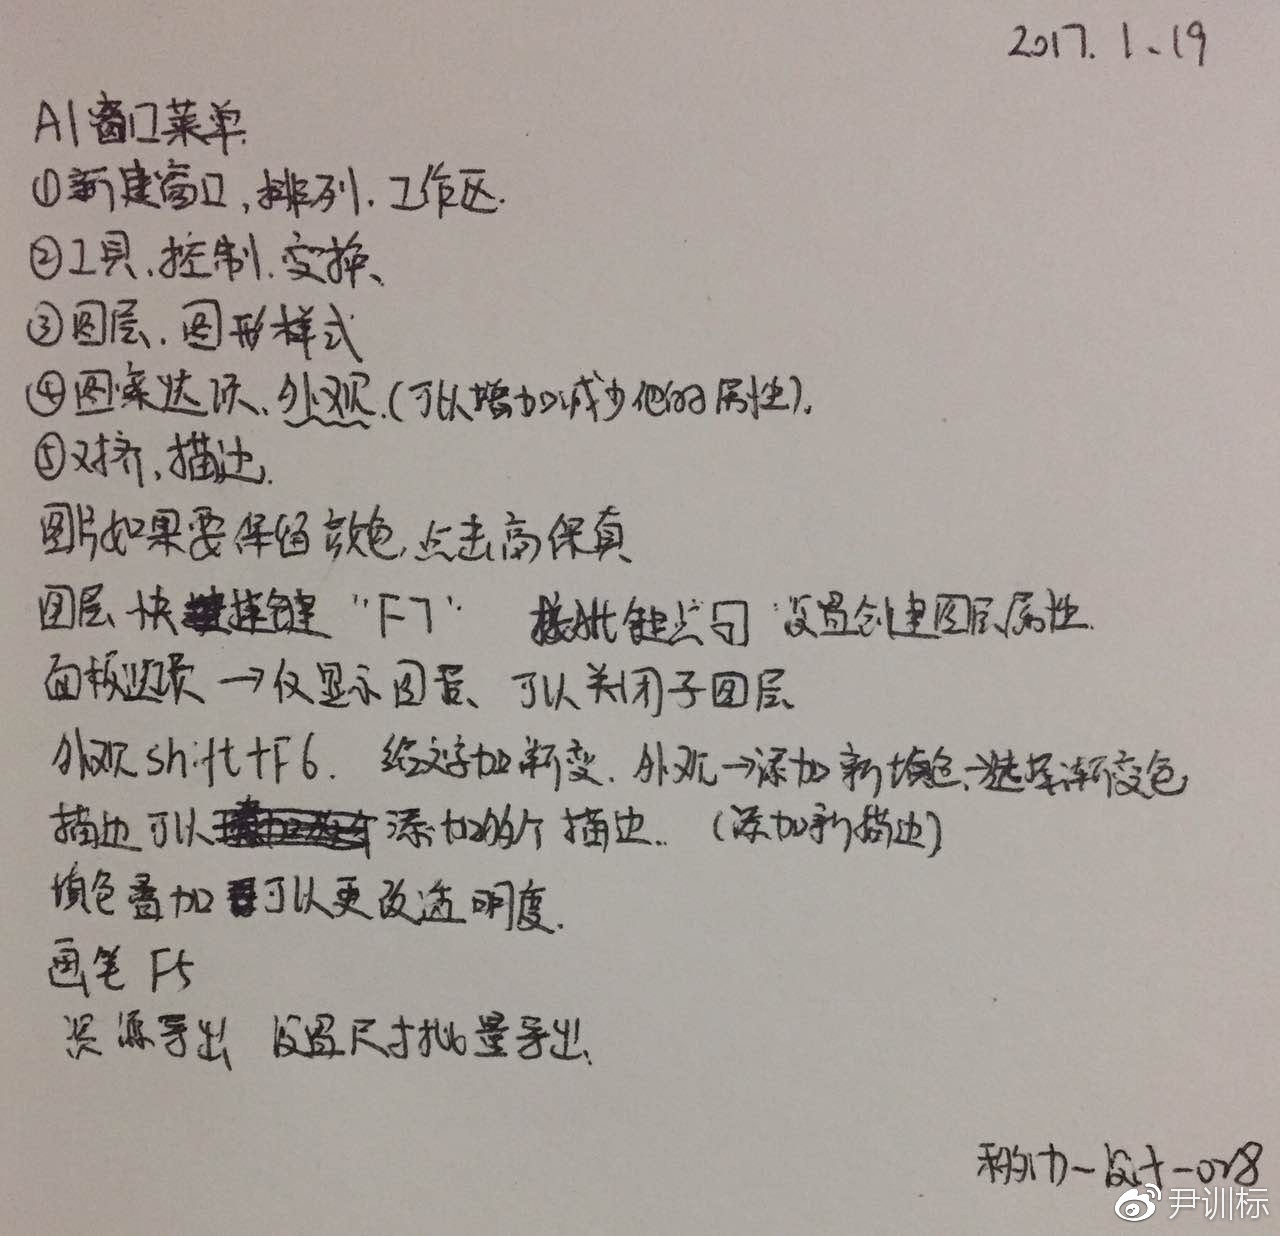 2017.1.19
AI窗口菜单.
①新建窗口,排列.工作区.
②工具.控制.变换、
③图层.图形样式
④图案达、外观.(可以增加减少他的属性).
⑤对齐、描边.
图片如果要保留颜色,点击高保真
图层快捷键"F7" 设置创建图层属性.
面板选项→仅显示图层、可以关闭子图层
外观shift+F6. 给文字加渐变.外观→添加新填色、选择渐变色
描边可以添加多个描边..(添加新描边)
填色叠加可以更改透明度.
画笔F5
资源导出 设置尺寸批量导出、
-设计-028
尹训标